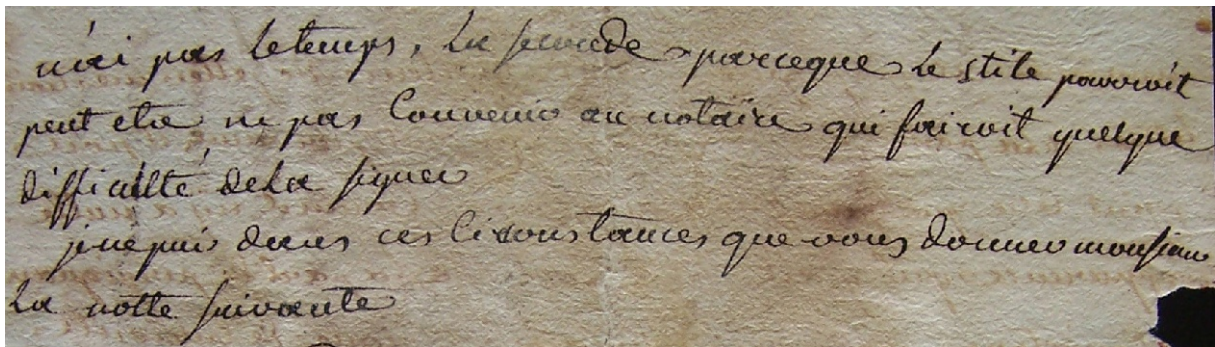 n'ai pas le temps, la seconde parceque le stile pourroit
peut etre ne pas Convenir au notaire qui fairoit quelque
difficulté de la signer
je ne puis dans ces Circonstances que vous donner monsieur
La notte suivante